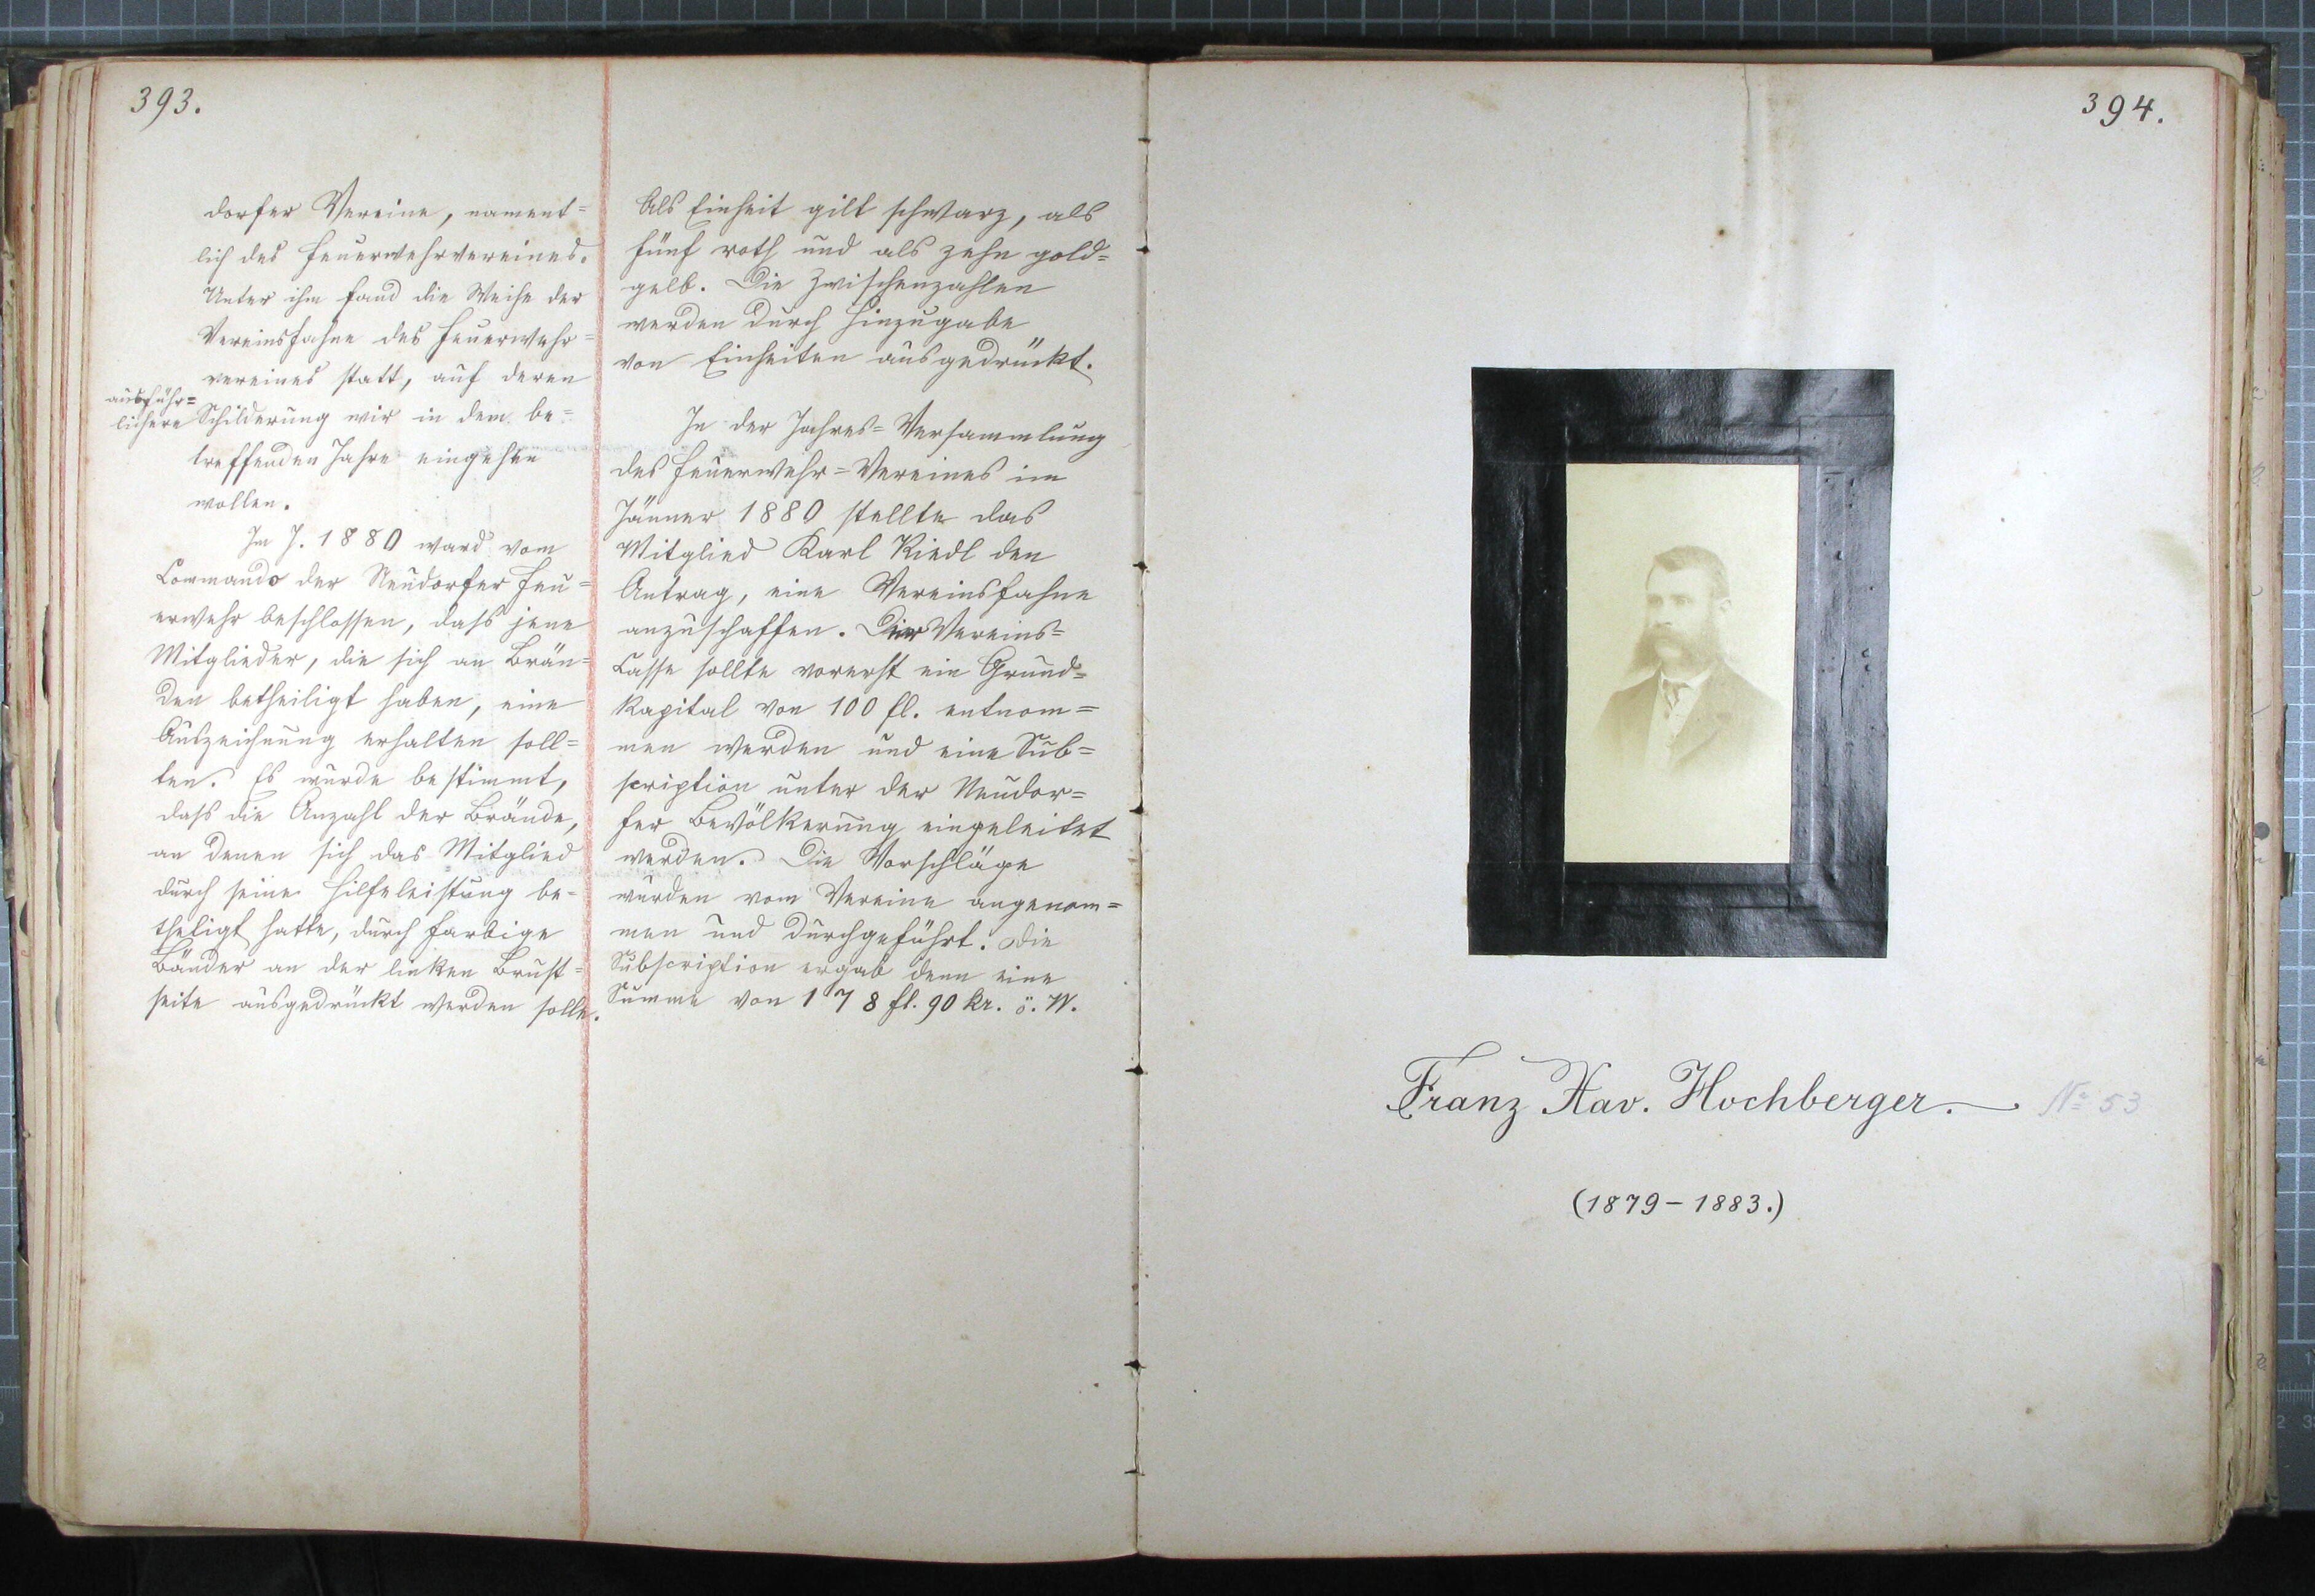 393.
dorfer Vereine, nament=
lich des Feuerwehrvereines.
Unter ihm fand die Weihe der
Vereinsfahne des Feuerwehr=
vereines statt, auf deren
ausführ=
lichere Schilderung wir in dem be=
treffenden Jahre eingehen
wollen.
Im J. 1880 ward vom
Commando der Neudorfer Feu=
erwehr beschlossen, dass jene
Mitglieder, die sich an Brän=
den betheiligt haben, eine
Auszeichnung erhalten soll=
ten. Es wurde bestimmt,
dass die Anzahl der Brände,
an denen sich das Mitglied
durch seine Hilfeleistung be=
theiligt hatte, durch farbige
Bänder an der linken Brust=
seite ausgedrückt werden solle.
Als Einheit gilt schwarz, als
fünf roth und als zehn gold=
gelb. Die Zwischenzahlen
werden durch Hinzugabe
von Einheiten ausgedrückt.
In der Jahres=Versammlung
des Feuerwehr=Vereines im
Jänner 1880 stellte das
Mitglied Karl Riedl den
Antrag, eine Vereinsfahne
anzuschaffen. Der Vereins=
Casse sollte vorerst ein Grund=
kapital von 100 fl. entnom=
men werden und eine Sub=
scription unter der Neudor=
fer Bevölkerung eingeleitet
werden. Die Vorschläge
wurden vom Vereine angenom=
men und durchgeführt. Die
Subscription ergab denn eine
Summe von 178 fl. 90 kr. ö. W.
394.
Franz Xav. Hochberger.
No 53
(1879-1883.)